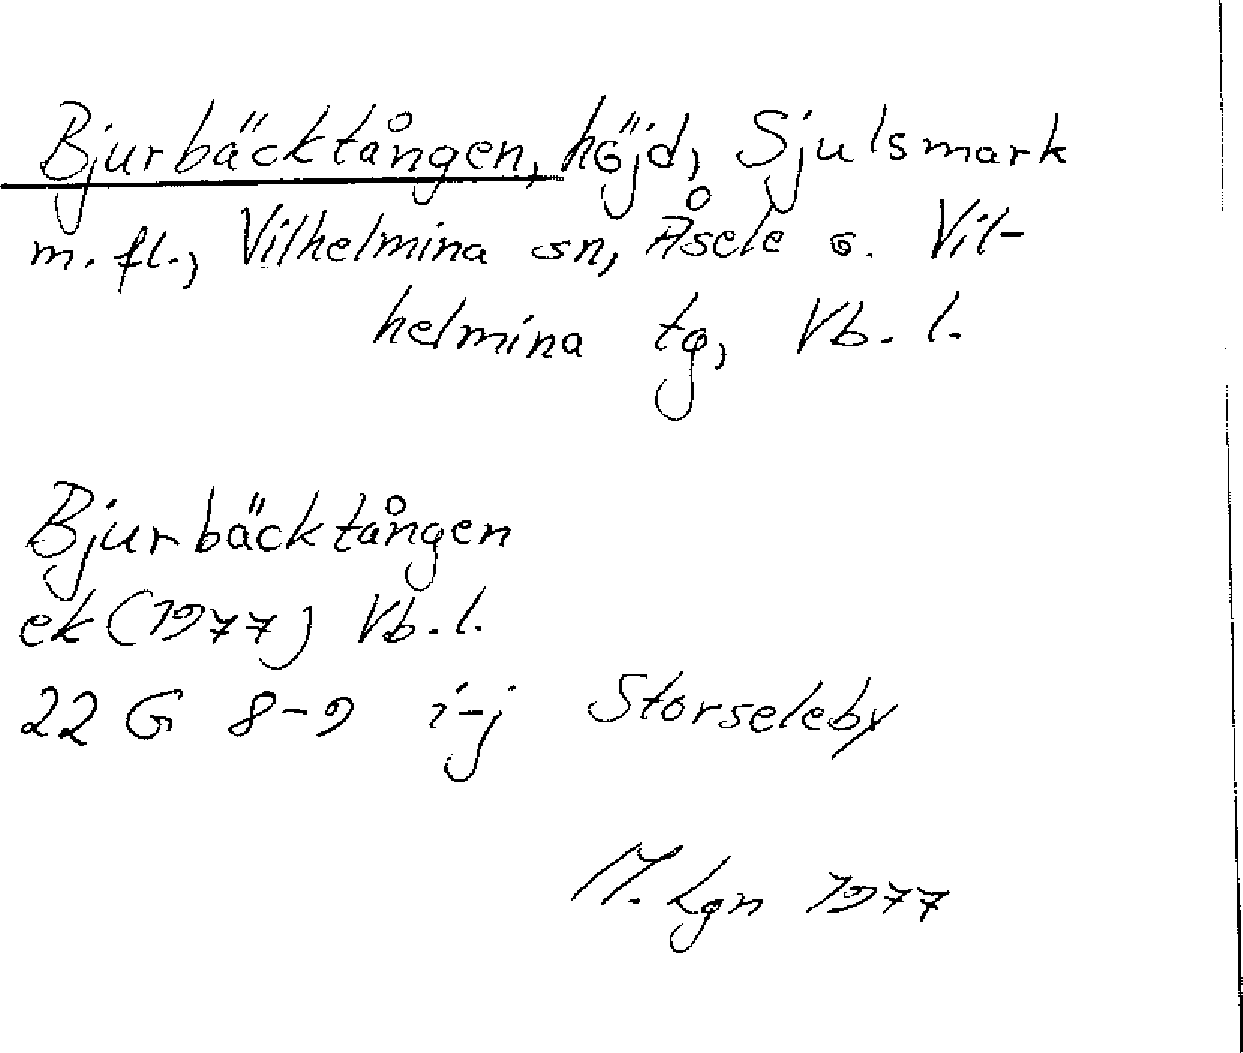 Bjurbäcktången, höjd, Sjulsmark
m. fl., Vilhelmina sn, Åsele o. Vil-
helmina tg, Vb. l.
Bjurbäcktången
ek (1977) Vb. l.
22 G 8-9 i-j Storseleby
M. Lgn 1977